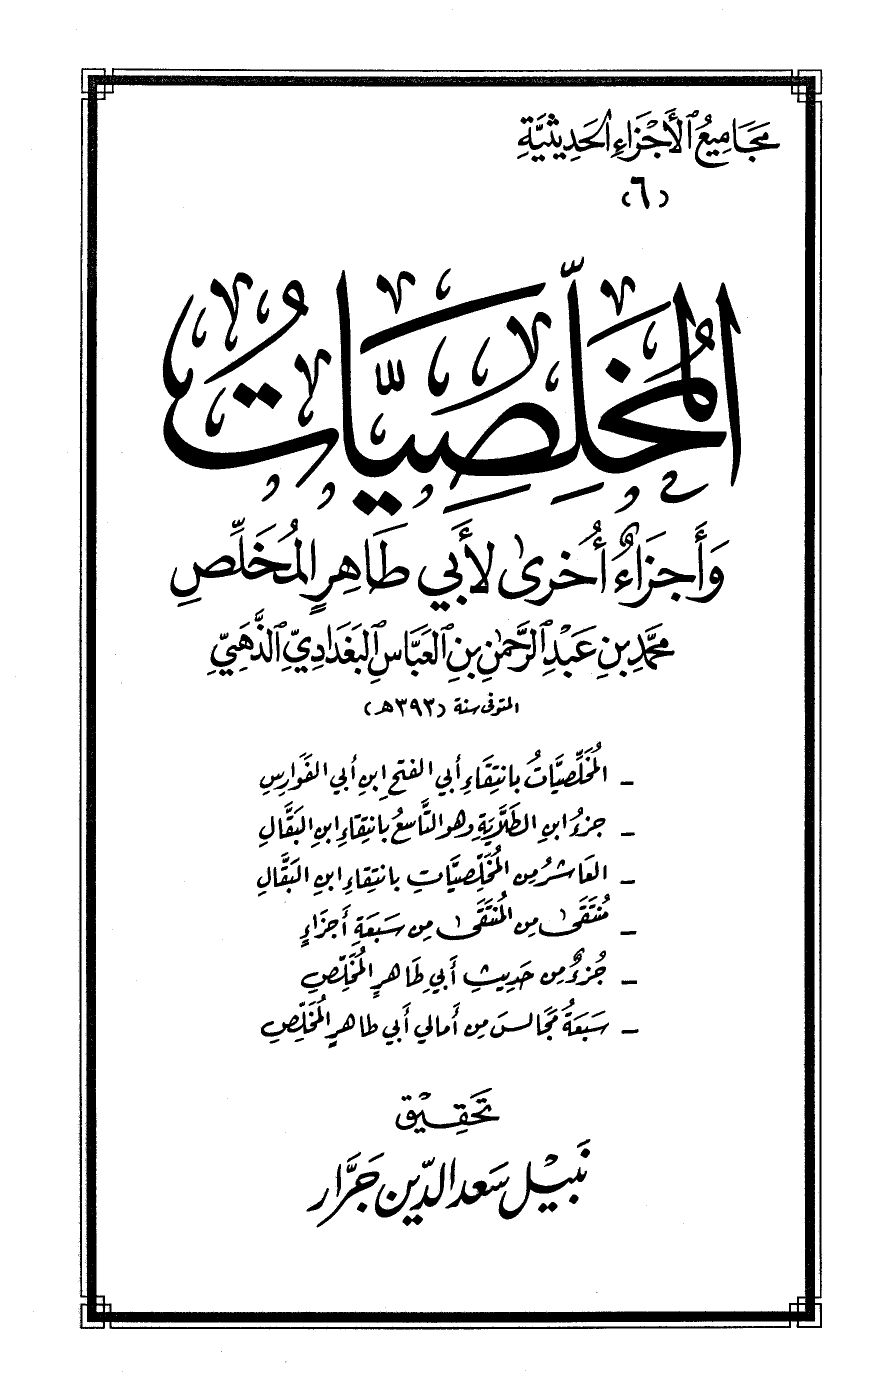 مَجَامِيعُ الأَجْزَاءِ الحَدِيثِيَّةِ
(٦)
المُخَلِّصِيَّاتُ
وَأَجزَاءٌ أُخرىٰ لأَبي طَاهِرٍ المُخَلِّصِ
مُحَمَّدِ بنِ عَبْدِ الرَّحمٰنِ بنِ العَبَّاسِ البَغدَادِيِّ الذَّهَبِيِّ
المتوفى سنة (٣٩٣هـ)
- المُخَلِّصِيَّاتُ بانتِقَاءِ أبي الفتحِ ابنِ أبي الفَوَارِسِ
- جزءُ ابنِ الطَّلَّايَةِ وهو التَّاسعُ بانتِقاءِ ابنِ البَقَّالِ
- العَاشرُ مِن المُخَلِّصيَّاتِ بانتِقاءِ ابنِ البَقَّالِ
- مُنتَقَىٰ مِن المُنتَقَىٰ مِن سَبعَةِ أَجزَاءٍ
- جُزءٌ مِن حَدِيثِ أَبي طَاهرٍ المُخَلِّصِ
- سَبعَةُ مَجَالسَ مِن أَمالي أَبي طاهرٍ المُخَلِّصِ
تَحقِيق
نَبيل سَعد الدِّين جَرَّار